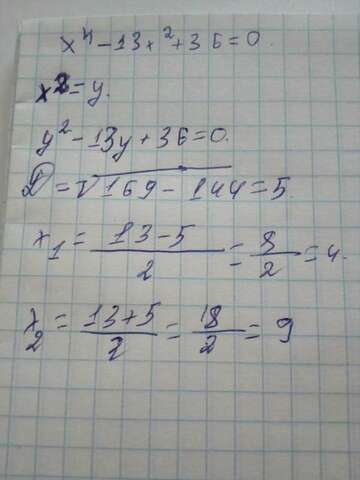 x⁴-13x²+36=0.
x²=y.
y²-13y+36=0.
D=√169-144=5
x₁=13-5/2=8/2=4.
x₂=13+5/2=18/2=9